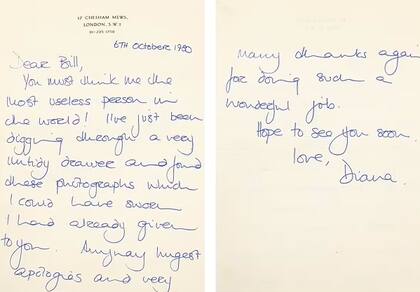 17 CHESHAM MEWS,
LONDON, S.W.1
6TH October 1980
Dear Bill,
You must think me the
most useless person in
the world! I've just been
digging through a very
untidy drawer and found
these photographs which
I could have sworn
I had already given
to you. Anyway hugest
apologies and very
many thanks again
for doing such a
wonderful job.
Hope to see you soon.
love,
Diana.